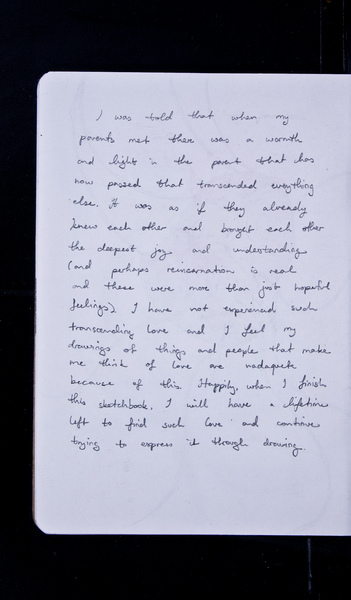 I was told that when my
parents met there was a warmth
and light in the parent that has
now passed that transcended everything
else. It was as if they already
knew each other and brought each other
the deepest joy and understanding
(and perhaps reincarnation is real
and these were more than just hopeful
feelings). I have not experienced such
transcending love and I feel my
drawings of things and people that make
me think of love are inadequate
because of this. Happily, when I finish
this sketchbook, I will have a lifetime
left to find such love and continue
trying to express it through drawing.